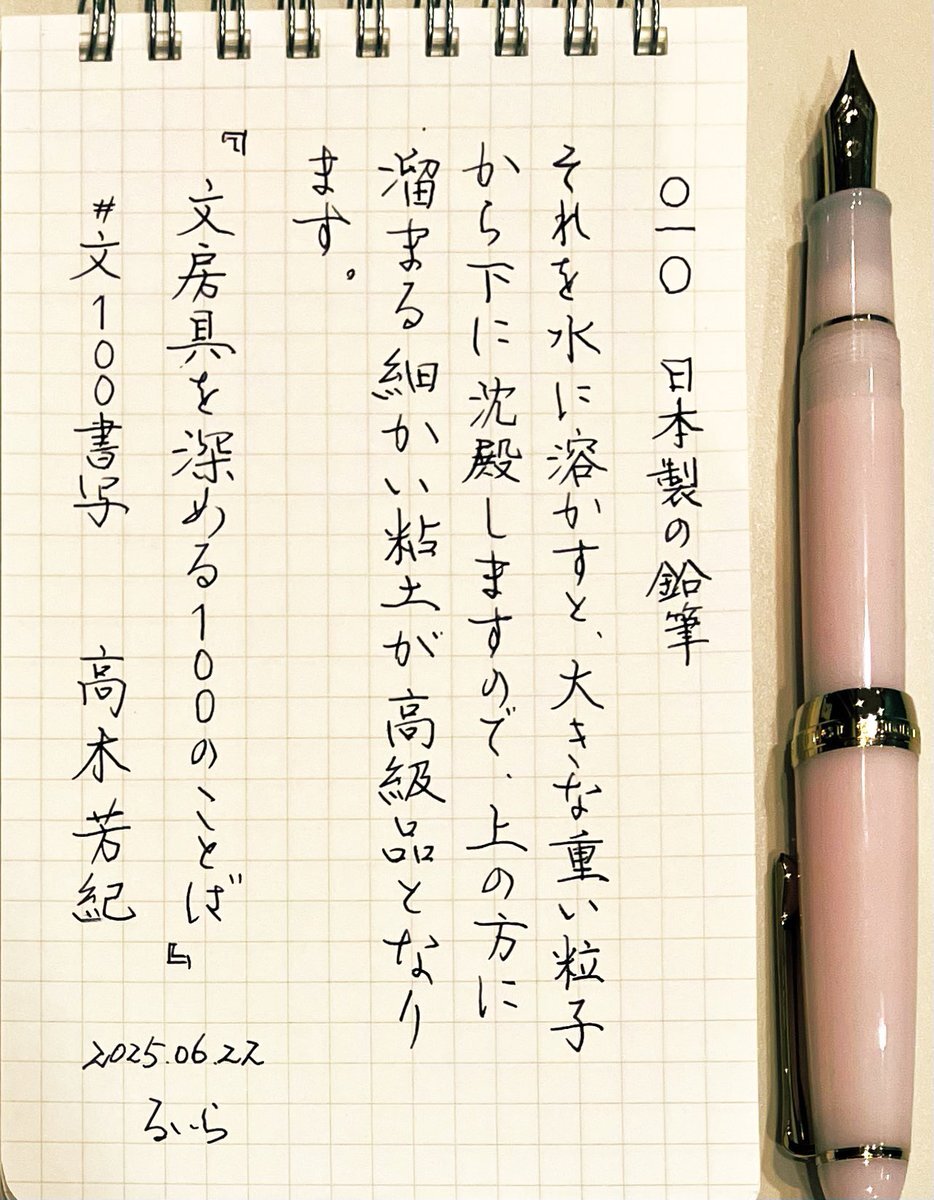 〇一〇 日本製の鉛筆
それを水に溶かすと、大きな重い粒子
から下に沈殿しますので、上の方に
溜まる細かい粘土が高級品となり
ます。
『文房具を深める100のことば』
#文100書写 高木芳紀
2025.06.22
るいら